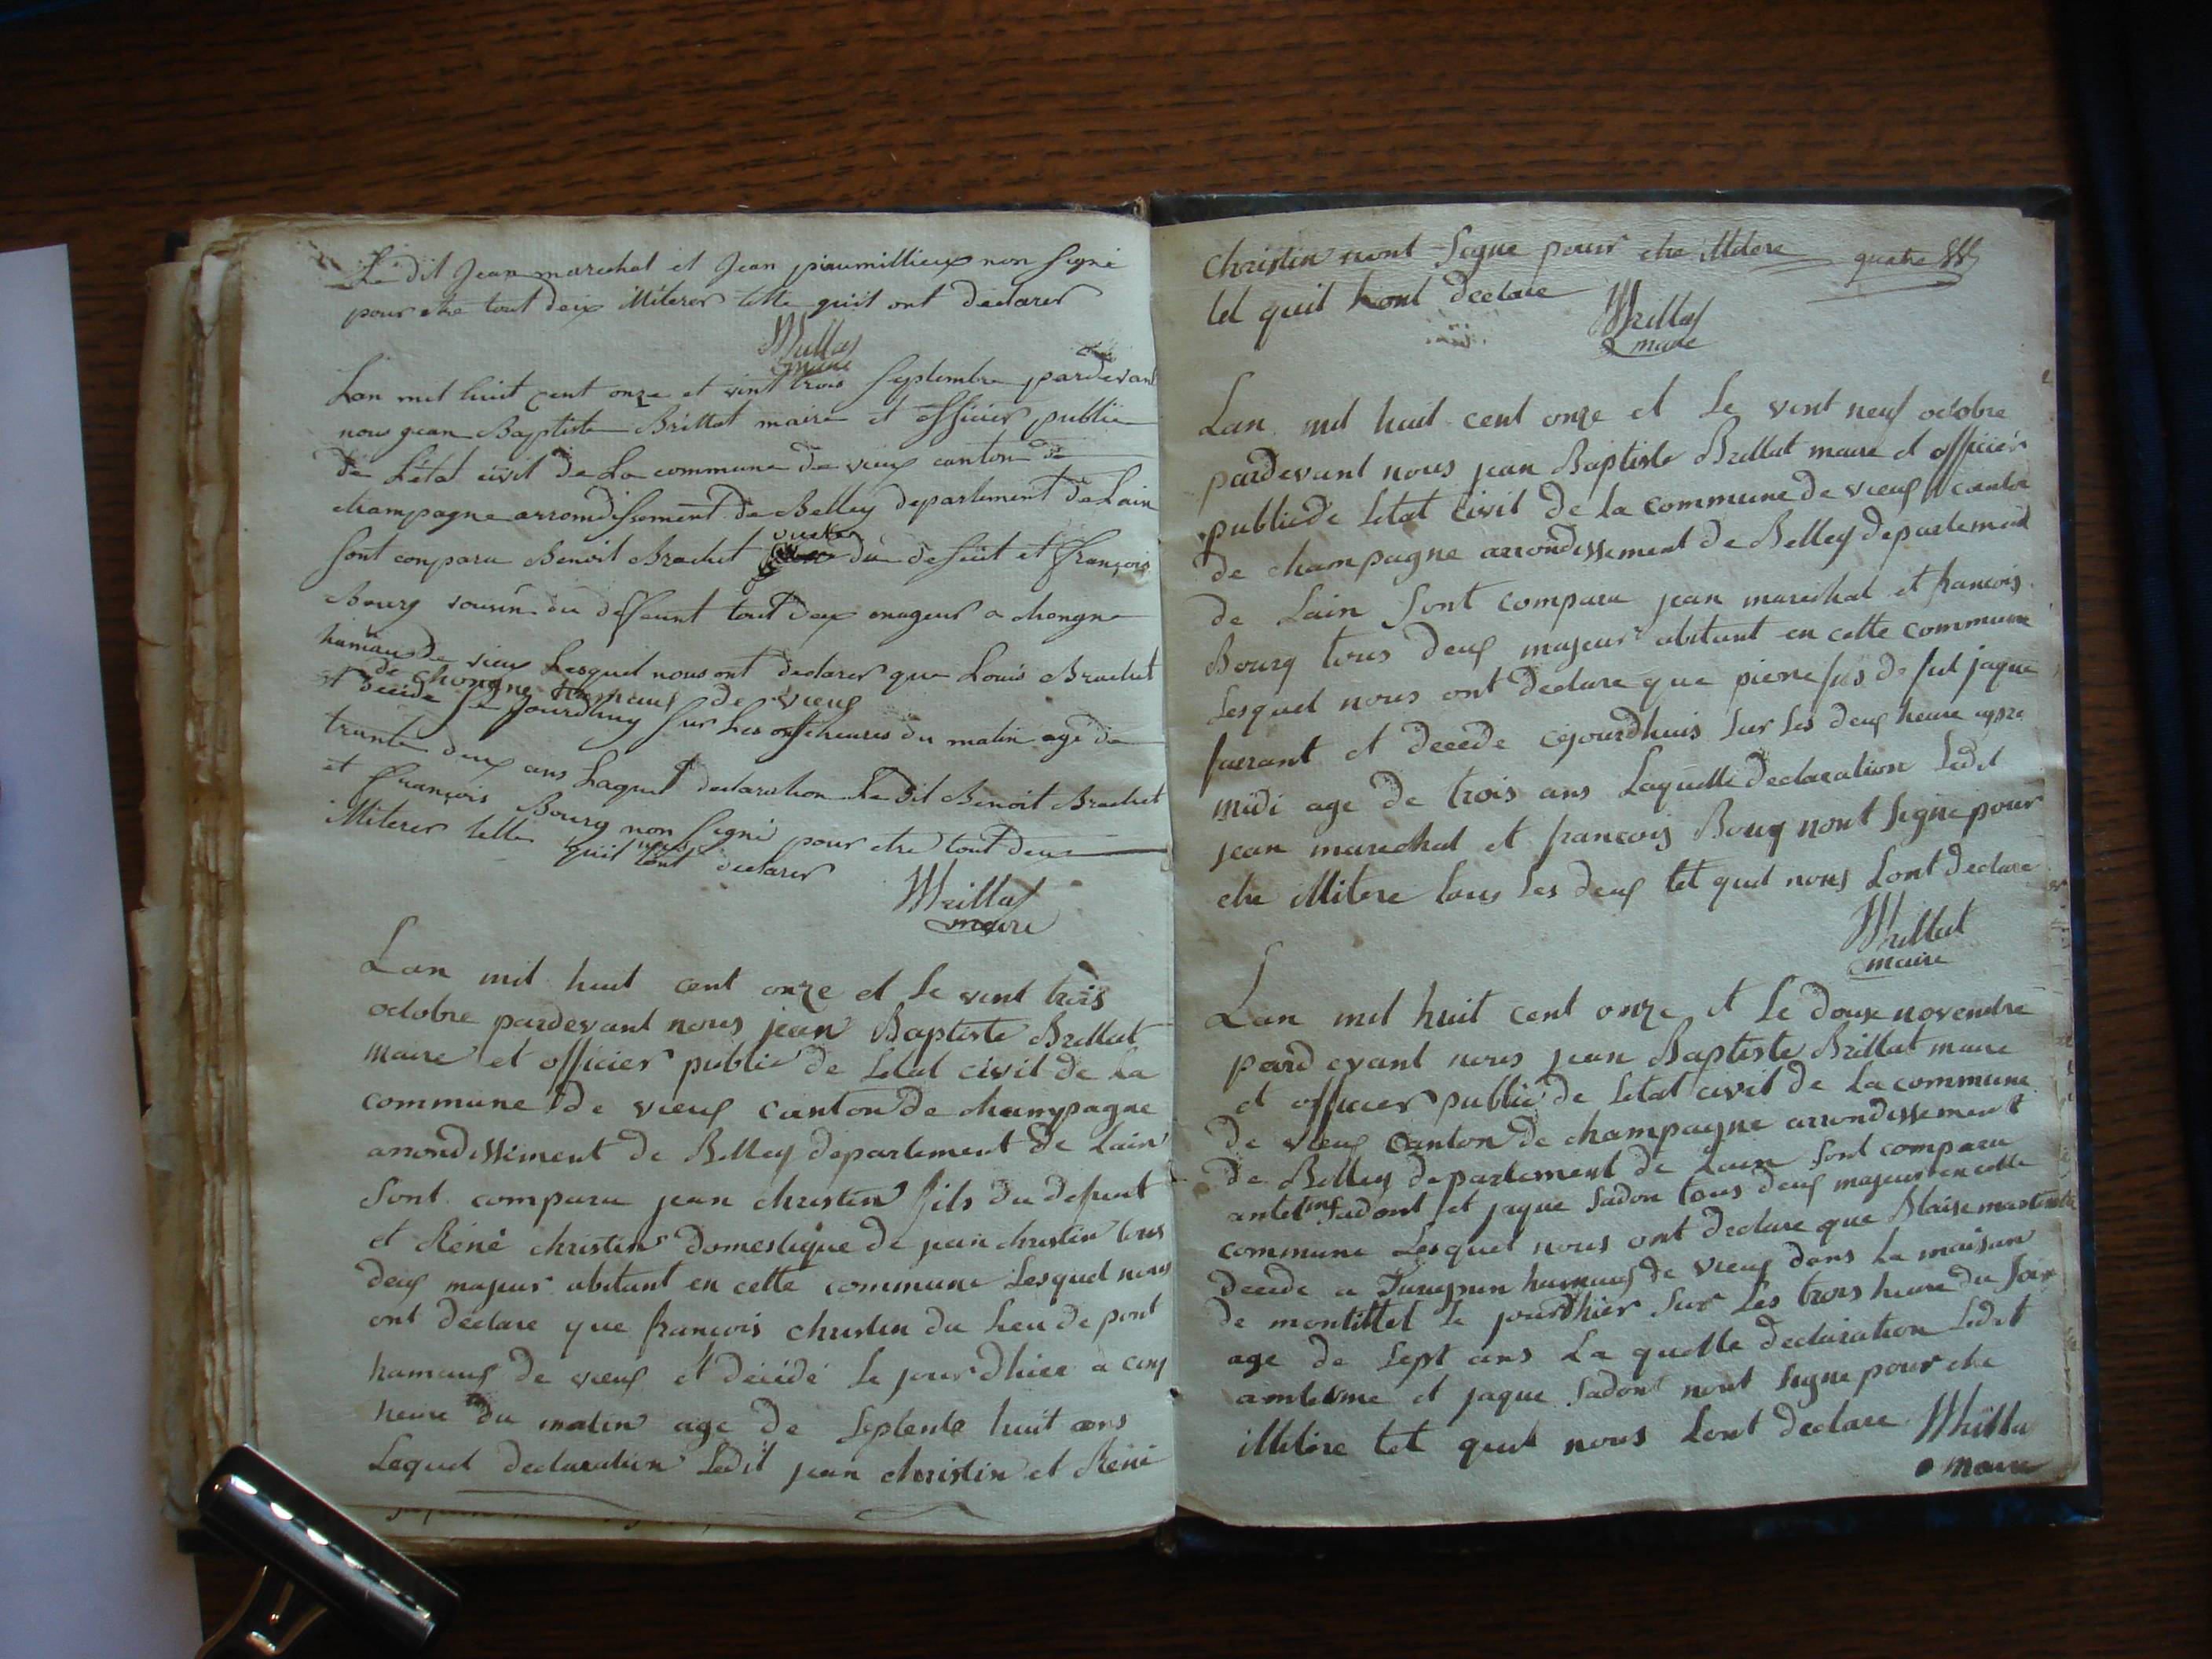 Le dit Jean marechal et Jean piaumillieux non Signé
pour etre tout deux illiterer telle quil ont declarer
Brillat
maire
Lan mil huit cent onze et vint trois Septembre pardevant
nous jean Baptiste Brillat maire et officier public
de Létat civil de La commune de vieux canton de
champagne arrondissement de Belley departement de Lain
Sont comparu Benoit Brachet du defunt et François
Bourg cousin du deffunt tout deux mageur a chongne
hamau de vieux Lesquel nous ont declarer que Louis Brachet
de chongne hamaux de vieux
et décédé Le jourdhuy Sur Les onse heures du matin agé de
trante deux ans Laquel declaration Le dit Benoit Brachet
et François Bourg non Signé pour etre tout deux
illiterer telle quil nous lont declarer
Brillat
maire
Lan mil huit cent onze et le vint trois
octobre pardevant nous jean Baptiste Brillat
maire et officier public de Letat civil de La
commune de vieux canton de champagne
arrondissement de Belley departement de Lain
Sont comparu jean christin fils du defunt
et Réné christin domestique de jean christin tous
deux majeur abitant en cette commune Lesquel nous
ont declare que francois christin du Lieu de pont
hamaux de vieux et décédé Le jour dhier a cinq
heure du matin age de Septente huit ans
Lequel declaration Ledit jean christin et Réné
christin nont Signe pour etre illitere
quatre
tel quil Lont declare
Brillat
maire
Lan mil huit cent onze et Le vint neuf octobre
pardevant nous jean Baptiste Brillat maire et officier
public de Letat civil de la commune de vieux canton
de champagne arrondissement de Belley departement
de Lain Sont comparu jean marechal et francois
Bourg tous deux majeur abitant en cette commune
Lesquel nous ont declare que pierre fils de feu jaque
et decede cejourdhuis Sur les deux heure apre
midi age de trois ans Laquelle declaration Ledit
jean marechal et francois Bourg nont Signe pour
etre illitere tous les deux tel quil nous Lont declare
Brillat
maire
Lan mil huit cent onze et Le douze novembre
pard evant nous jean Baptiste Brillat maire
et officier public de Letat civil de La commune
de vieux canton de champagne arrondissement
de Belley departement de Lain Sont comparu
antelme Sadont et jaque Sadon tous deux majeur en cette
commune Lesquel nous ont declare que Blaise
decede a hamaux de vieux dans La maison
de montillet le jourdhier Sur Les trois heure du Soir
age de Sept ans La quelle declaration Ledit
antelme et jaque Sadont nont Signe pour etre
illitere tel quil nous Lont declare Brillat
maire